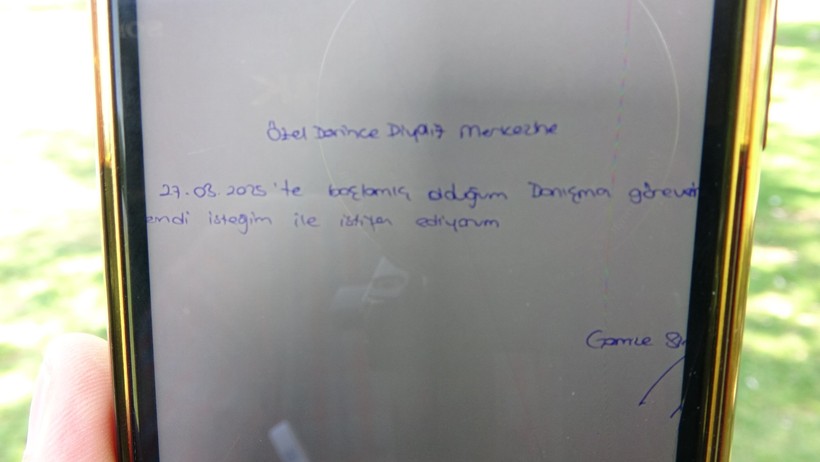 Özel Darince Diyaliz Merkezine
27.03.2025'te başlamış olduğum Danışma
endi isteğim ile istifa ediyorum
Gamze